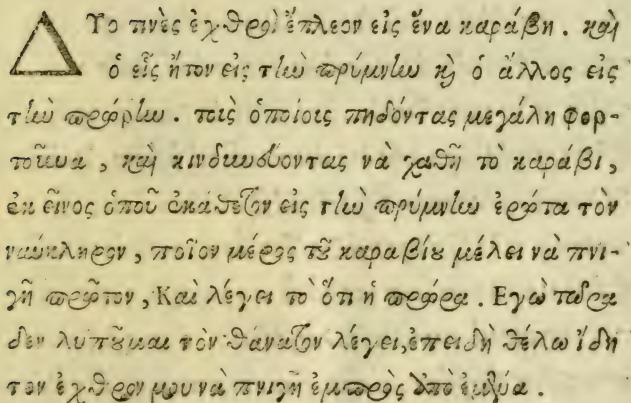 ΔΥο τινὲς ἐχθροὶ ἔπλεον εἰς ἕνα καράβη. καὶ
ὁ εἷς ἦτον εἰς τὴν πρύμνην κὶ ὁ ἄλλος εἰς
τὴν πρῴρην. τοῖς ὁποίοις πηδόντας μεγάλη φορ-
τοῦνα, καὶ κινδυνεύοντας νὰ χαθῇ τὸ καράβι,
ἐκεῖνος ὁποῦ ἐκάθεζον εἰς τὴν πρύμνην ἐρώτα τὸν
ναύκληρον, ποῖον μέρος τοῦ καραβίου μέλει νὰ πνι-
γῇ πρῶτον, Καὶ λέγει τὸ ὅτι ἡ πρώρα. Εγὼ τώρα
δεν λυποῦμαι τὸν θάνατον λέγει, ἐπειδὴ θέλω ἴδῃ
τον ἐχθρον μου νὰ πνιγῇ ἐμπρὸς ἀπὸ ἐμένα.